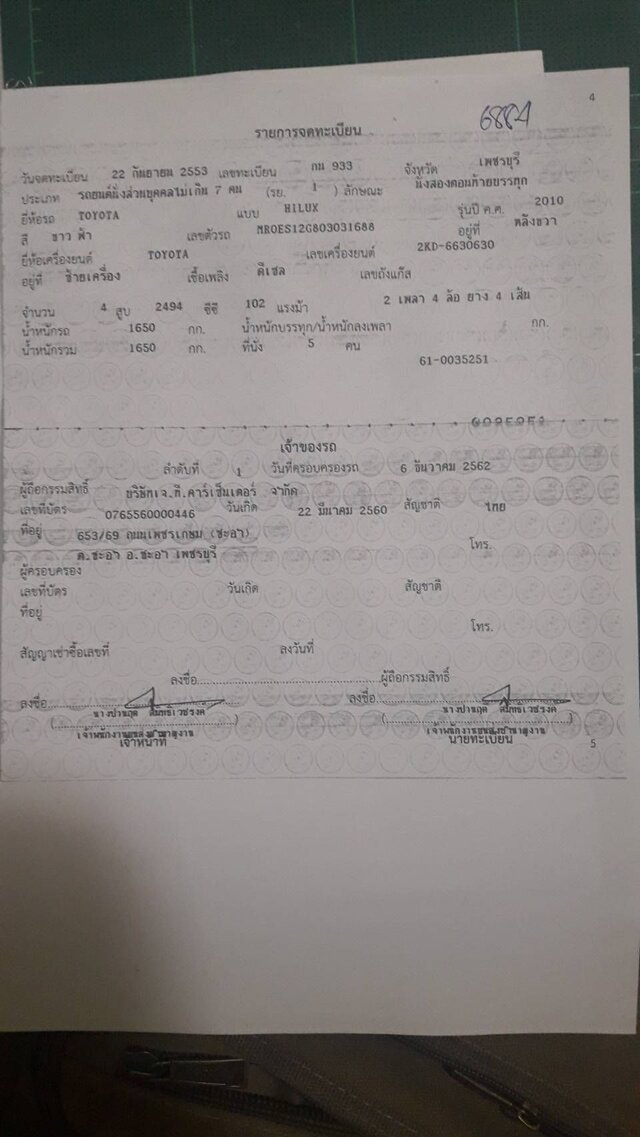 4
6884
รายการจดทะเบียน
วันจดทะเบียน 22 กันยายน 2553 เลขทะเบียน กม 933 จังหวัด เพชรบุรี
ประเภท รถยนต์นั่งส่วนบุคคลไม่เกิน 7 คน (รย. 1 ) ลักษณะ นั่งสองตอนท้ายบรรทุก
ยี่ห้อรถ TOYOTA แบบ HILUX รุ่นปี ค.ศ. 2010
สี ขาว ฟ้า เลขตัวรถ MROES12G803031688 อยู่ที่ หลังขวา
ยี่ห้อเครื่องยนต์ TOYOTA เลขเครื่องยนต์ 2KD-6630630
อยู่ที่ ซ้ายเครื่อง เชื้อเพลิง ดีเซล เลขถังแก๊ส
จำนวน 4 สูบ 2494 ซีซี 102 แรงม้า 2 เพลา 4 ล้อ ยาง 4 เส้น
น้ำหนักรถ 1650 กก. น้ำหนักบรรทุก/น้ำหนักลงเพลา กก.
น้ำหนักรวม 1650 กก. ที่นั่ง 5 คน
61-0035251
เจ้าของรถ
ลำดับที่ 1 วันที่ครอบครองรถ 6 ธันวาคม 2562
ผู้ถือกรรมสิทธิ์ บริษัทเจ.ที.คาร์เซ็นเตอร์ จำกัด
เลขที่บัตร 0765560000446 วันเกิด 22 มีนาคม 2560 สัญชาติ ไทย
ที่อยู่ 653/69 ถนนเพชรเกษม (ชะอำ) โทร.
ต.ชะอำ อ.ชะอำ เพชรบุรี
ผู้ครอบครอง
เลขที่บัตร วันเกิด สัญชาติ
ที่อยู่
โทร.
สัญญาเช่าซื้อเลขที่ ลงวันที่
ลงชื่อ ผู้ถือกรรมสิทธิ์
ลงชื่อ ลงชื่อ
เจ้าหน้าที่ นายทะเบียน
5